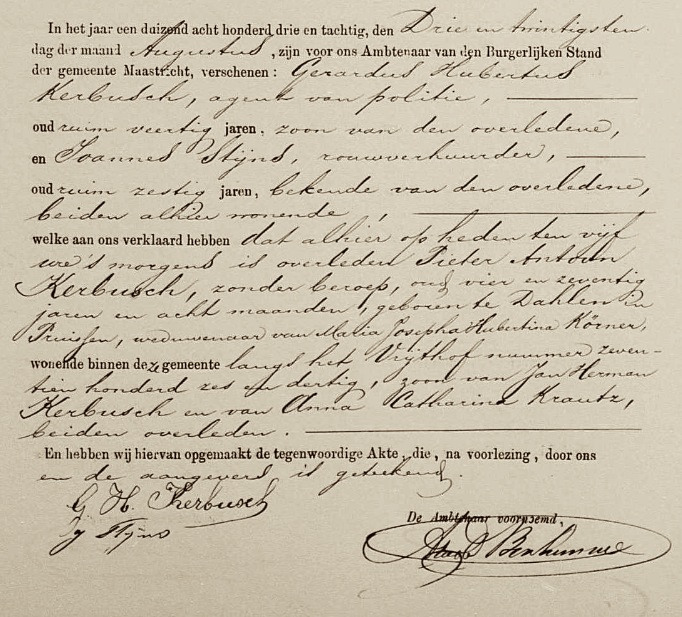 In het jaar een duizend acht honderd drie en tachtig, den Drie en twintigsten
dag der maand Augustus, zijn voor ons Ambtenaar van den Burgerlijken Stand
der gemeente Maastricht, verschenen: Gerardus Hubertus
Kerbusch, agent van politie,
oud ruim veertig jaren, zoon van den overledene,
en Joannes Stijns, rouwverhuurder,
oud ruim zestig jaren, bekende van den overledene,
beiden alhier wonende,
welke aan ons verklaard hebben dat alhier op heden ten vijf
ure 's morgens is overleden Pieter Antoon
Kerbusch, zonder beroep, oud vier en zeventig
jaren en acht maanden, geboren te Dahlen in
Pruissen, weduwenaar van Maria Josepha Hubertina Körner,
wonende binnen deze gemeente langs het Vrijthof nummer zeven-
tien honderd zes en dertig, zoon van Jan Herman
Kerbusch en van Anna Catharina Krautz,
beiden overleden.
En hebben wij hiervan opgemaakt de tegenwoordige Akte, die, na voorlezing, door ons
en de aangevers is geteekend.
G. H. Kerbusch
J Stijns
De Ambtenaar voornoemd,